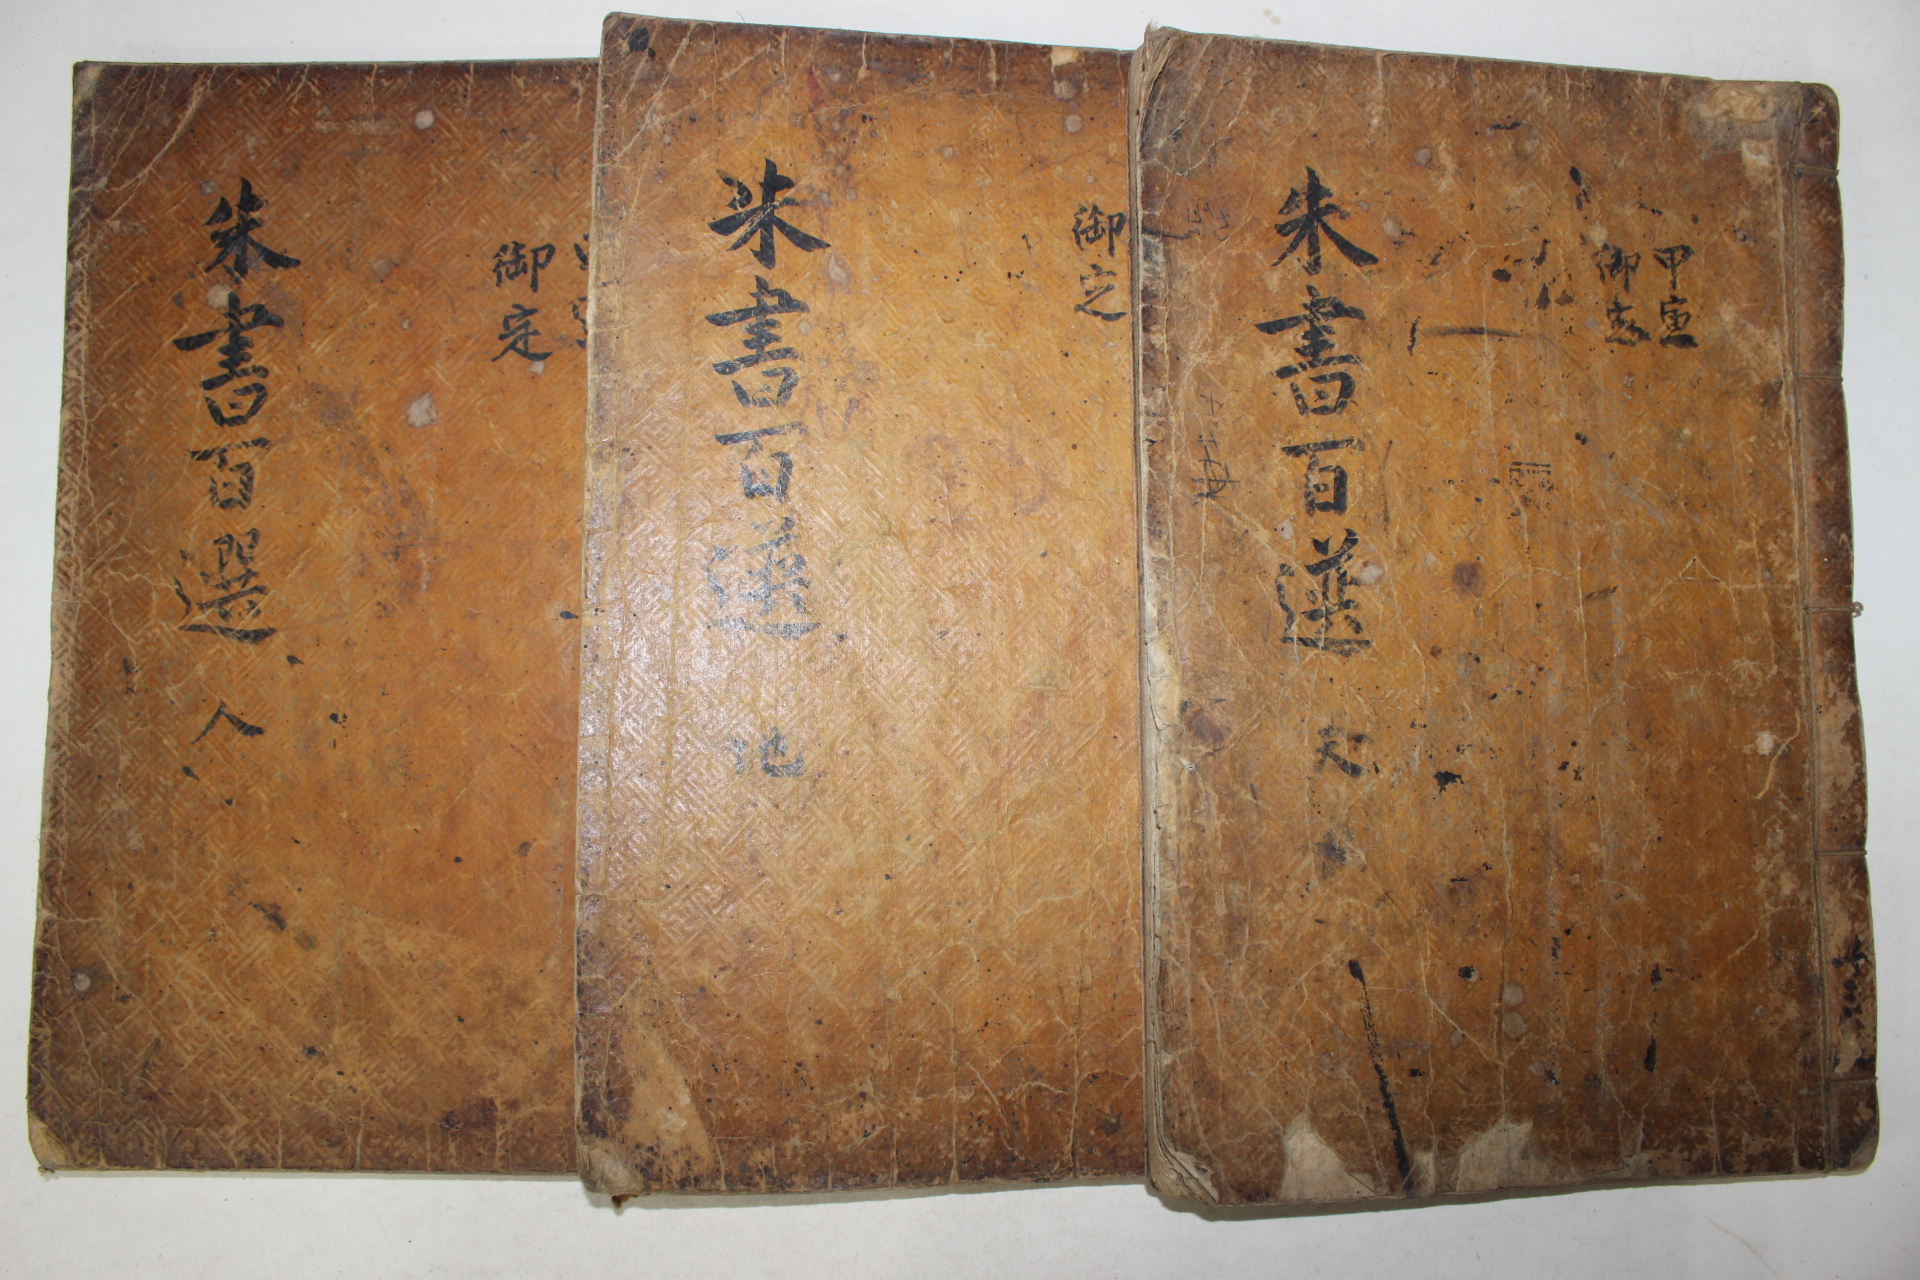 甲寅
御定
朱書百選 天
御定
朱書百選 地
御定
朱書百選 人